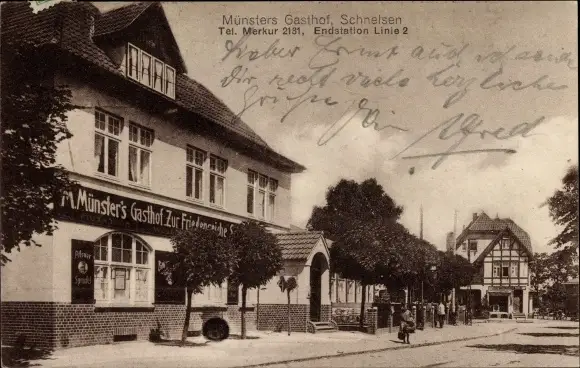 Münsters Gasthof, Schnelsen
Tel. Merkur 2131, Endstation Linie 2
Lieber Ernst auch ich sende
Dir recht viele herzliche
Grüße Dein
Alfred
M. Münster's Gasthof Zur Friedenseiche